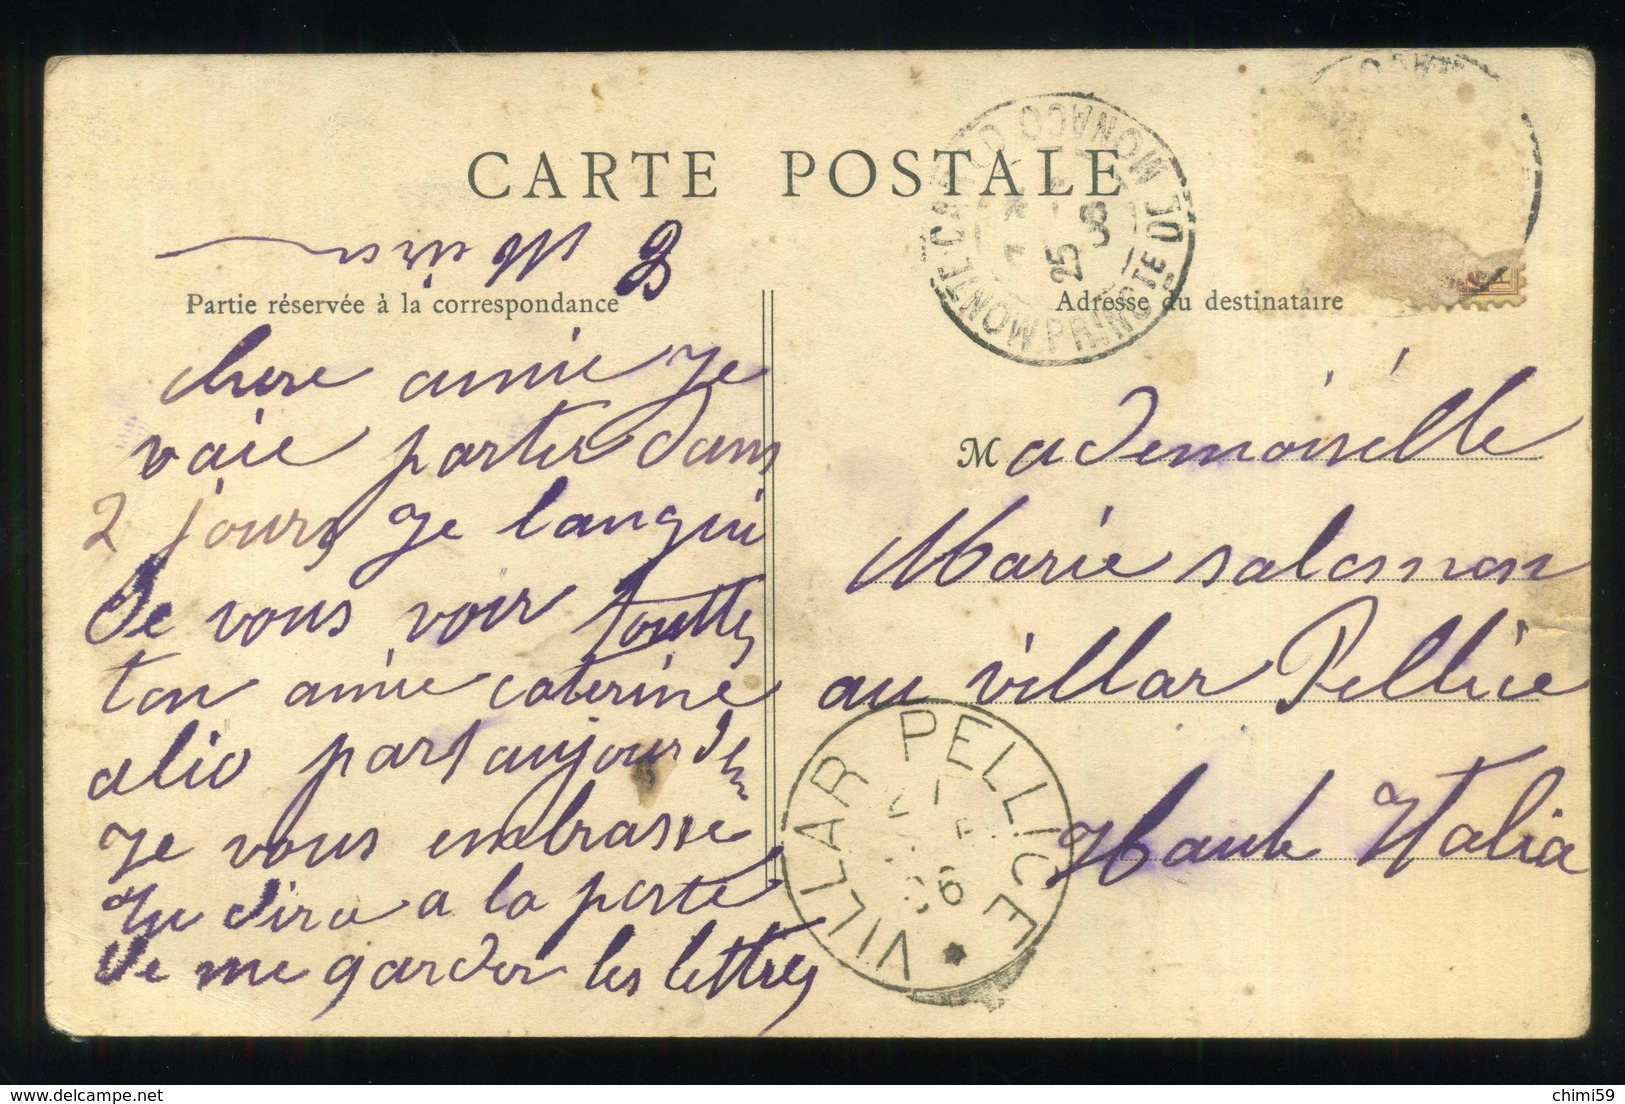 CARTE POSTALE
MONTE-CARLO MONACO
PRINCTE DE
25
Partie réservée à la correspondance
Adresse du destinataire
chere amie Je
vaie partir dans
2 jours Je langui
De vous voir toutte
ton amie caterine
alio part aujourdhu
Je vous embrasse
Tu dira a la poste
De me garder les lettres
Mademoiselle
Marie salomon
au villar Pellice
Haute Italia
VILLAR PELLICE
chimi59